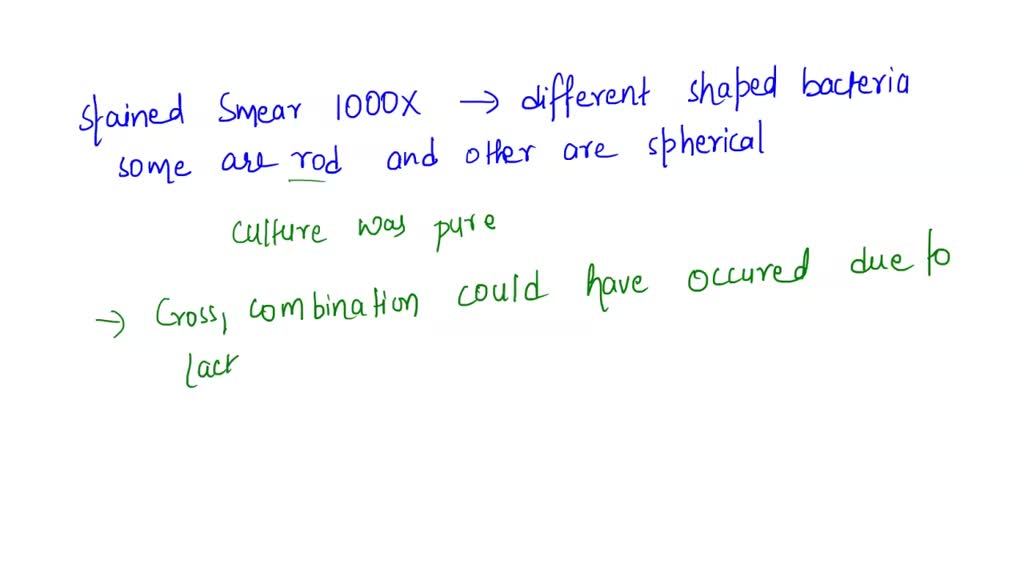 stained Smear 1000X → different shaped bacteria
some are rod and other are spherical
culture was pure
→ Cross, combination could have occured due to
lack